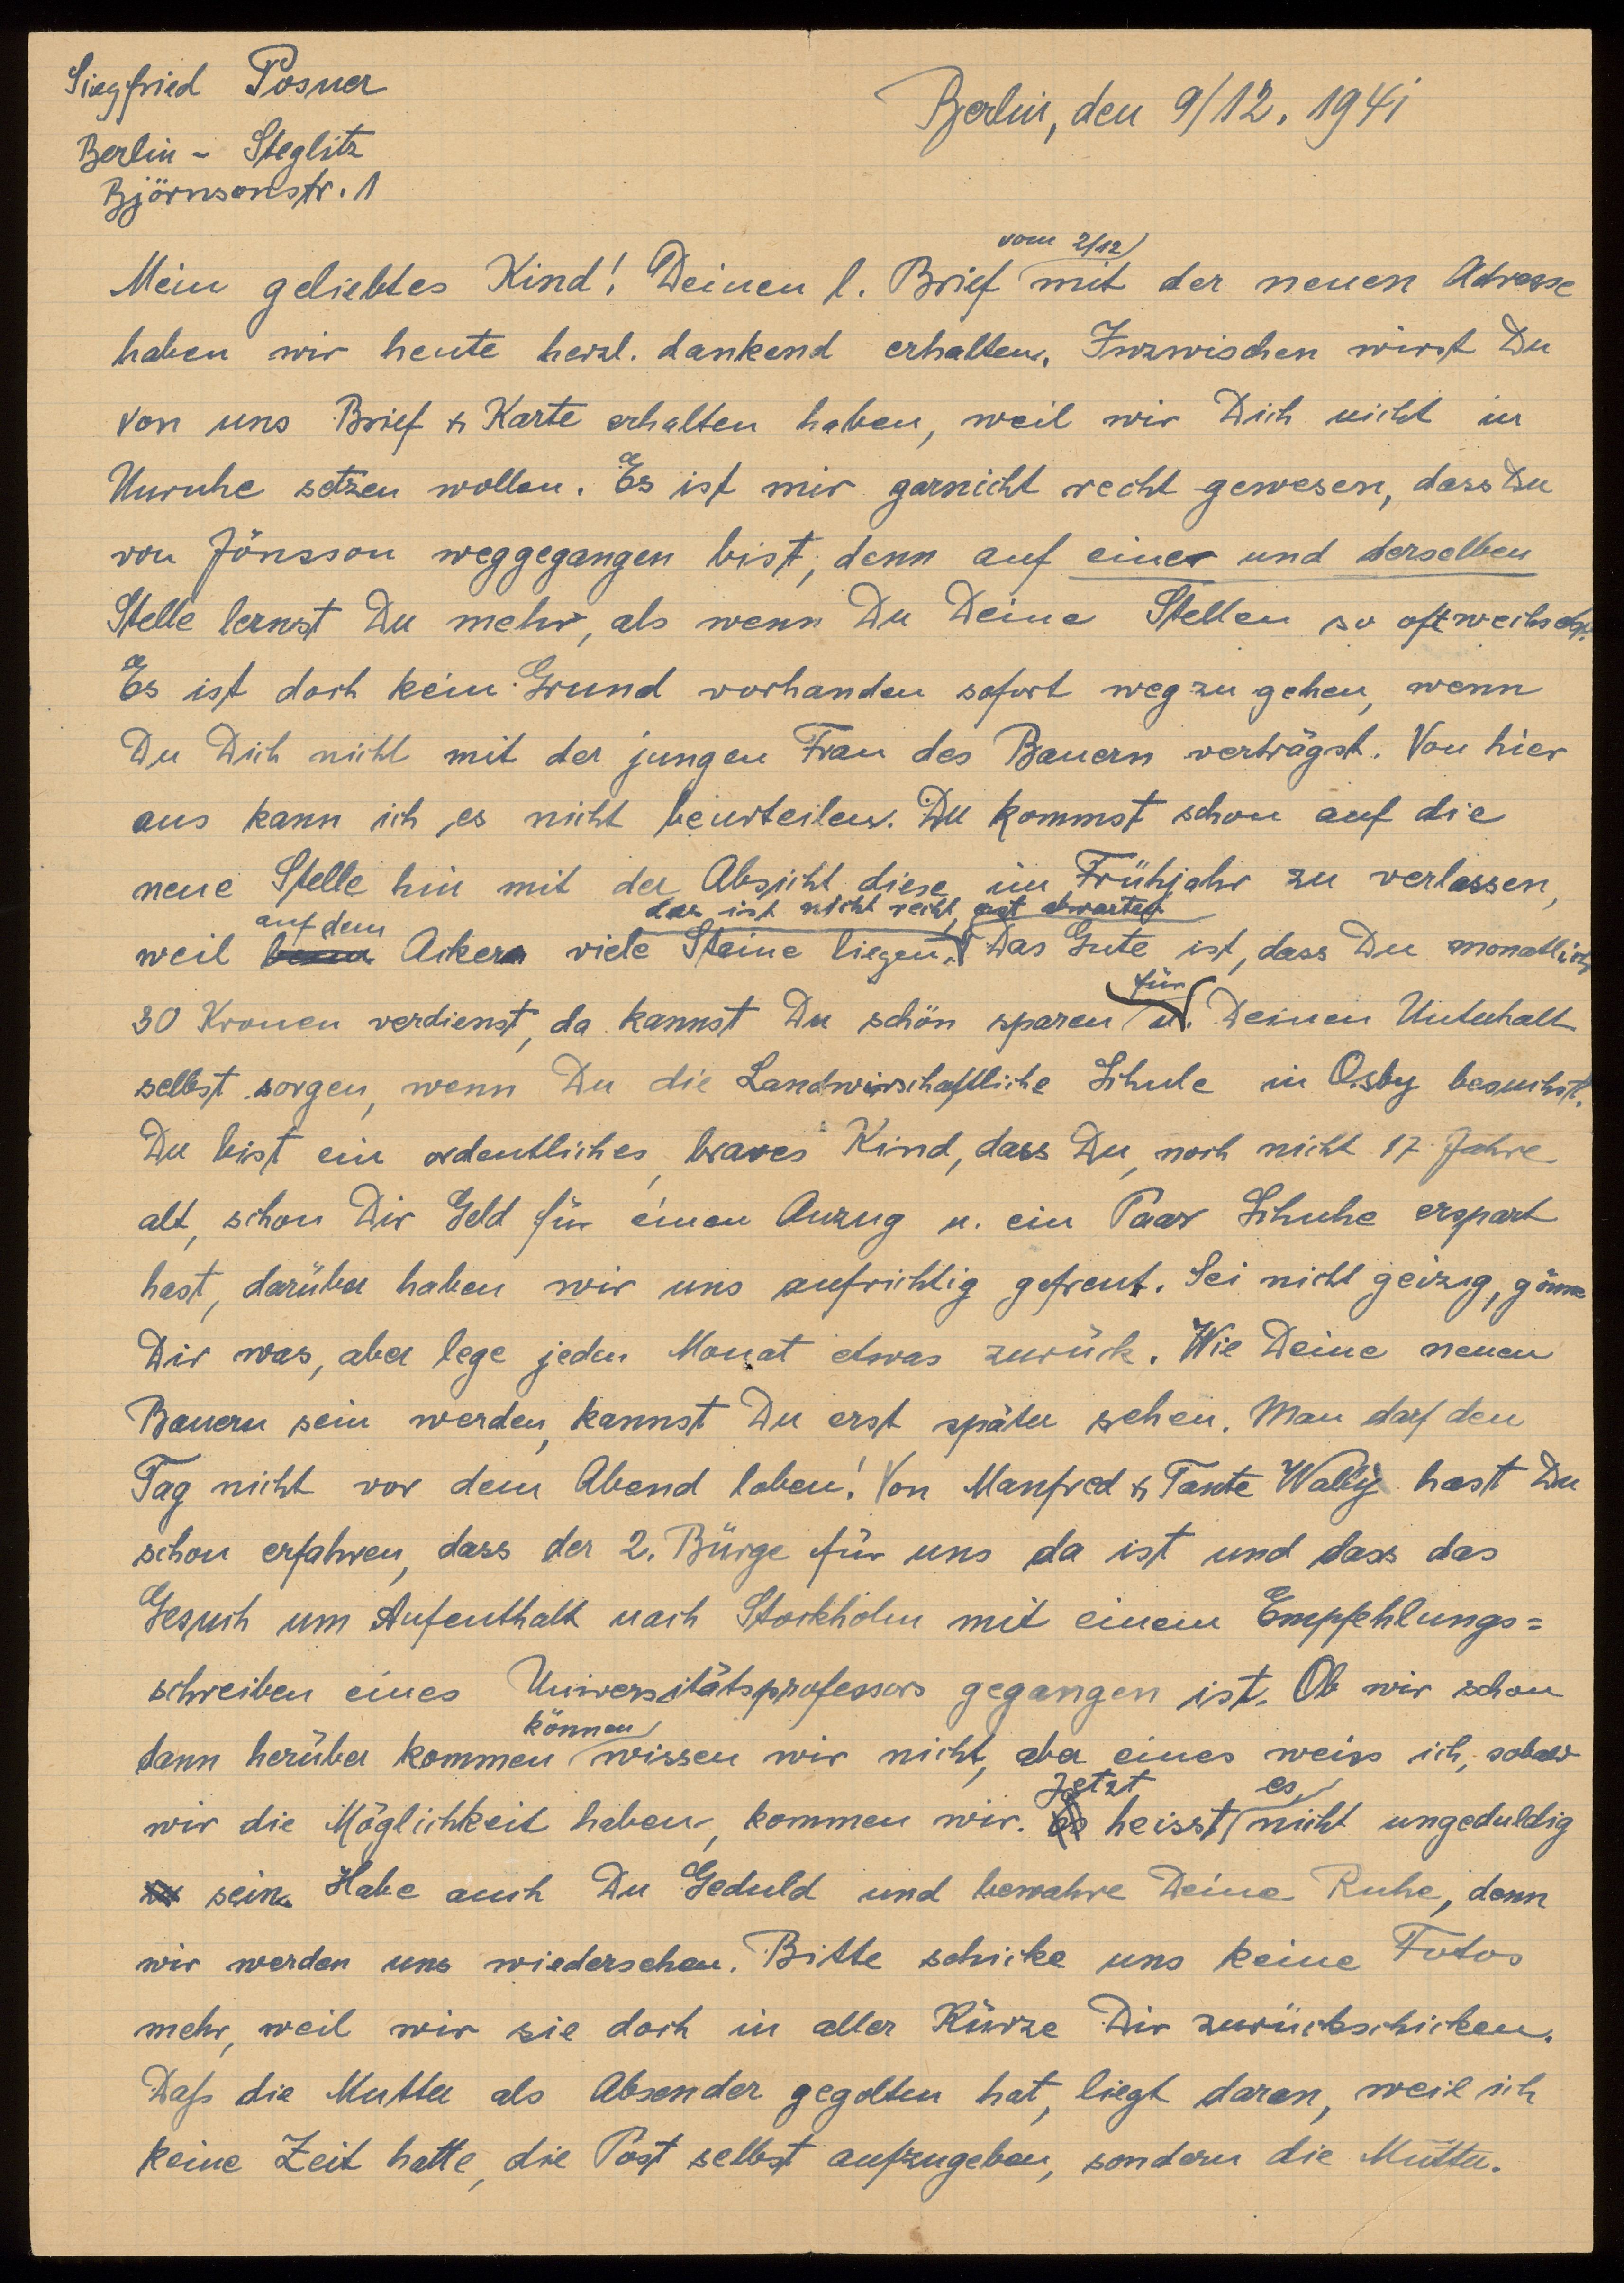 Siegfried Posner
Berlin - Steglitz
Björnsonstr. 1
Berlin, den 9/12. 1941
vom 2/12
Mein geliebtes Kind! Deinen l. Brief mit der neuen Adresse
haben wir heute herzl. dankend erhalten. Inzwischen wirst Du
von uns Brief & Karte erhalten haben, weil wir Dich nicht in
Unruhe setzen wollen. Es ist mir garnicht recht gewesen, dass Du
von Jönsson weggegangen bist, denn auf einer und derselben
Stelle lernst Du mehr, als wenn Du Deine Stellen so oft wechselst.
Es ist doch kein Grund vorhanden sofort wegzugehen, wenn
Du Dich nicht mit der jungen Frau des Bauern verträgst. Von hier
aus kann ich es nicht beurteilen. Du kommst schon auf die
neue Stelle hin mit der Absicht diese im Frühjahr zu verlassen,
auf dem das ist nicht recht, erst abwarten
weil Acker viele Steine liegen. Das Gute ist, dass Du monatlich
für
30 Kronen verdienst, da kannst Du schön sparen u. Deinen Unterhalt
selbst sorgen, wenn Du die Landwirschaftliche Schule in Osby besuchst.
Du bist ein ordentliches, braves Kind, dass Du, noch nicht 17 Jahre
alt, schon Dir Geld für einen Anzug u. ein Paar Schuhe erspart
hast, darüber haben wir uns aufrichtig gefreut. Sei nicht geizig, gönne
Dir was, aber lege jeden Monat etwas zurück. Wie Deine neuen
Bauern sein werden, kannst Du erst später sehen. Man darf den
Tag nicht vor dem Abend loben! Von Manfred & Tante Wally hast Du
schon erfahren, dass der 2. Bürge für uns da ist und dass das
Gesuch um Aufenthalt nach Stockholm mit einem Empfehlungs=
schreiben eines Universitätsprofessors gegangen ist. Ob wir schon
können
dann herüber kommen wissen wir nicht, aber eines weiss ich, sobald
Jetzt es
wir die Möglichkeit haben, kommen wir. heisst nicht ungeduldig
sein. Habe auch Du Geduld und bewahre Deine Ruhe, denn
wir werden uns wiedersehen. Bitte schicke uns keine Fotos
mehr, weil wir sie doch in aller Kürze Dir zurückschicken.
Daß die Mutter als Absender gegolten hat, liegt daran, weil ich
keine Zeit hatte, die Post selbst aufzugeben, sondern die Mutter.